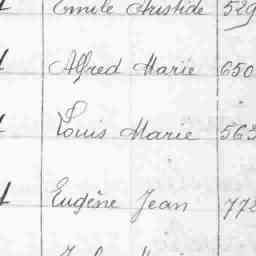 Emile Aristide 529
Alfred Marie 650
Louis Marie 563
Eugène Jean 772